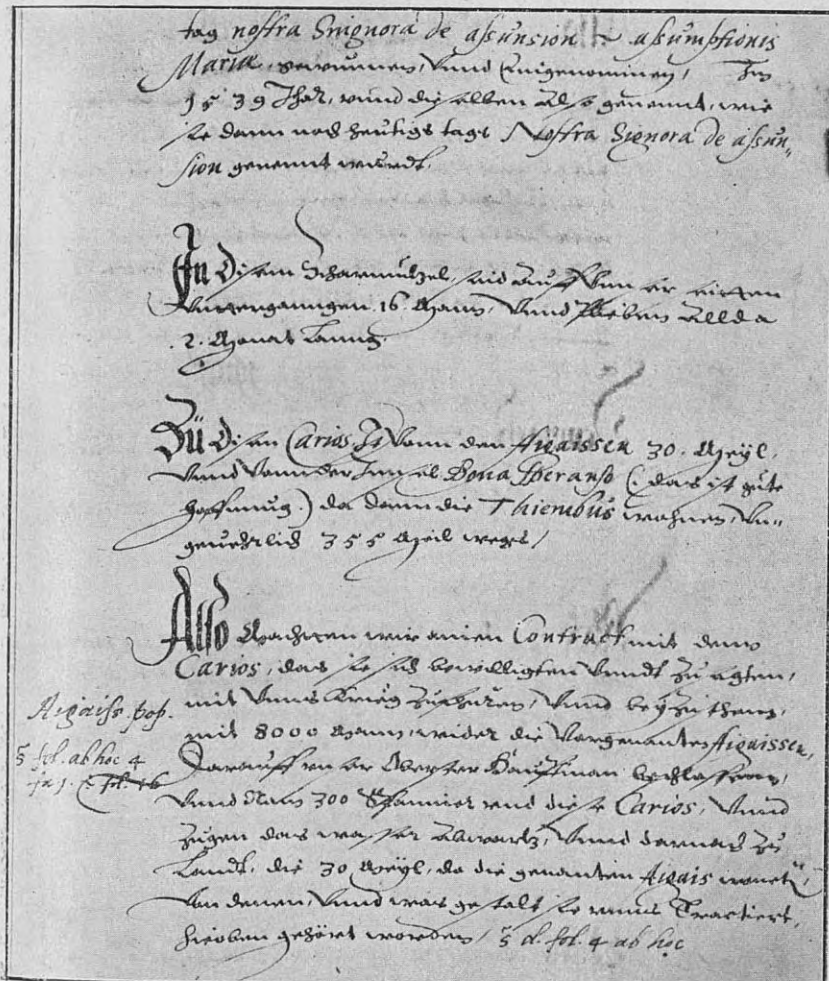 tag nostra Snignora de assunsion – assumptionis
Mariæ, gewunnen, vnnd Eingenomınen, Im
1539 Jhar, vnnd dieselben Also genennt, wie
sie dann noch heutigs tags Nostra Signora de assun„
sion genennt wurdt.
In disem Scharmützel, sind auff vnnser seitten
vmergangen 16 Mann, Vnnd blieben Allda
2. Monat lanng.
Zu disen Carios Is Vonn den Aigaissen 30. Meyl,
Vnnd Vonn der Innsel Bona Speranso (: das ist gute
hoffnung.) da dann die Thiembus wohnen, Vn„
geuehrlich 355 Meil weges /
Also Machten wir ainen Contract mit denn
Carios, das sie sich bewilligten Vnndt zu
mit Vnns Krieg zufhüren, Vnnd beyzusthenn,
mit 8000 Mann, wider die Vorgenanten Aigaissen,
Darauff vnser Oberster Hauptman beschlossen,
Vnnd Nam 300 Spannier vnd diese Carios, Vnnd
Zugen das wasser Abwartz, Vnnd darnach zu
Landt, die 30 Meyl, da die genanten Aigais wonetn,
Von denen, Vnnd was gestalt sie vnns Tractiert,
hieoben gehört worden / d. fol. 4 ab hoc
Aigaiss. pop.
fol. ab hoc 4
fol. 16